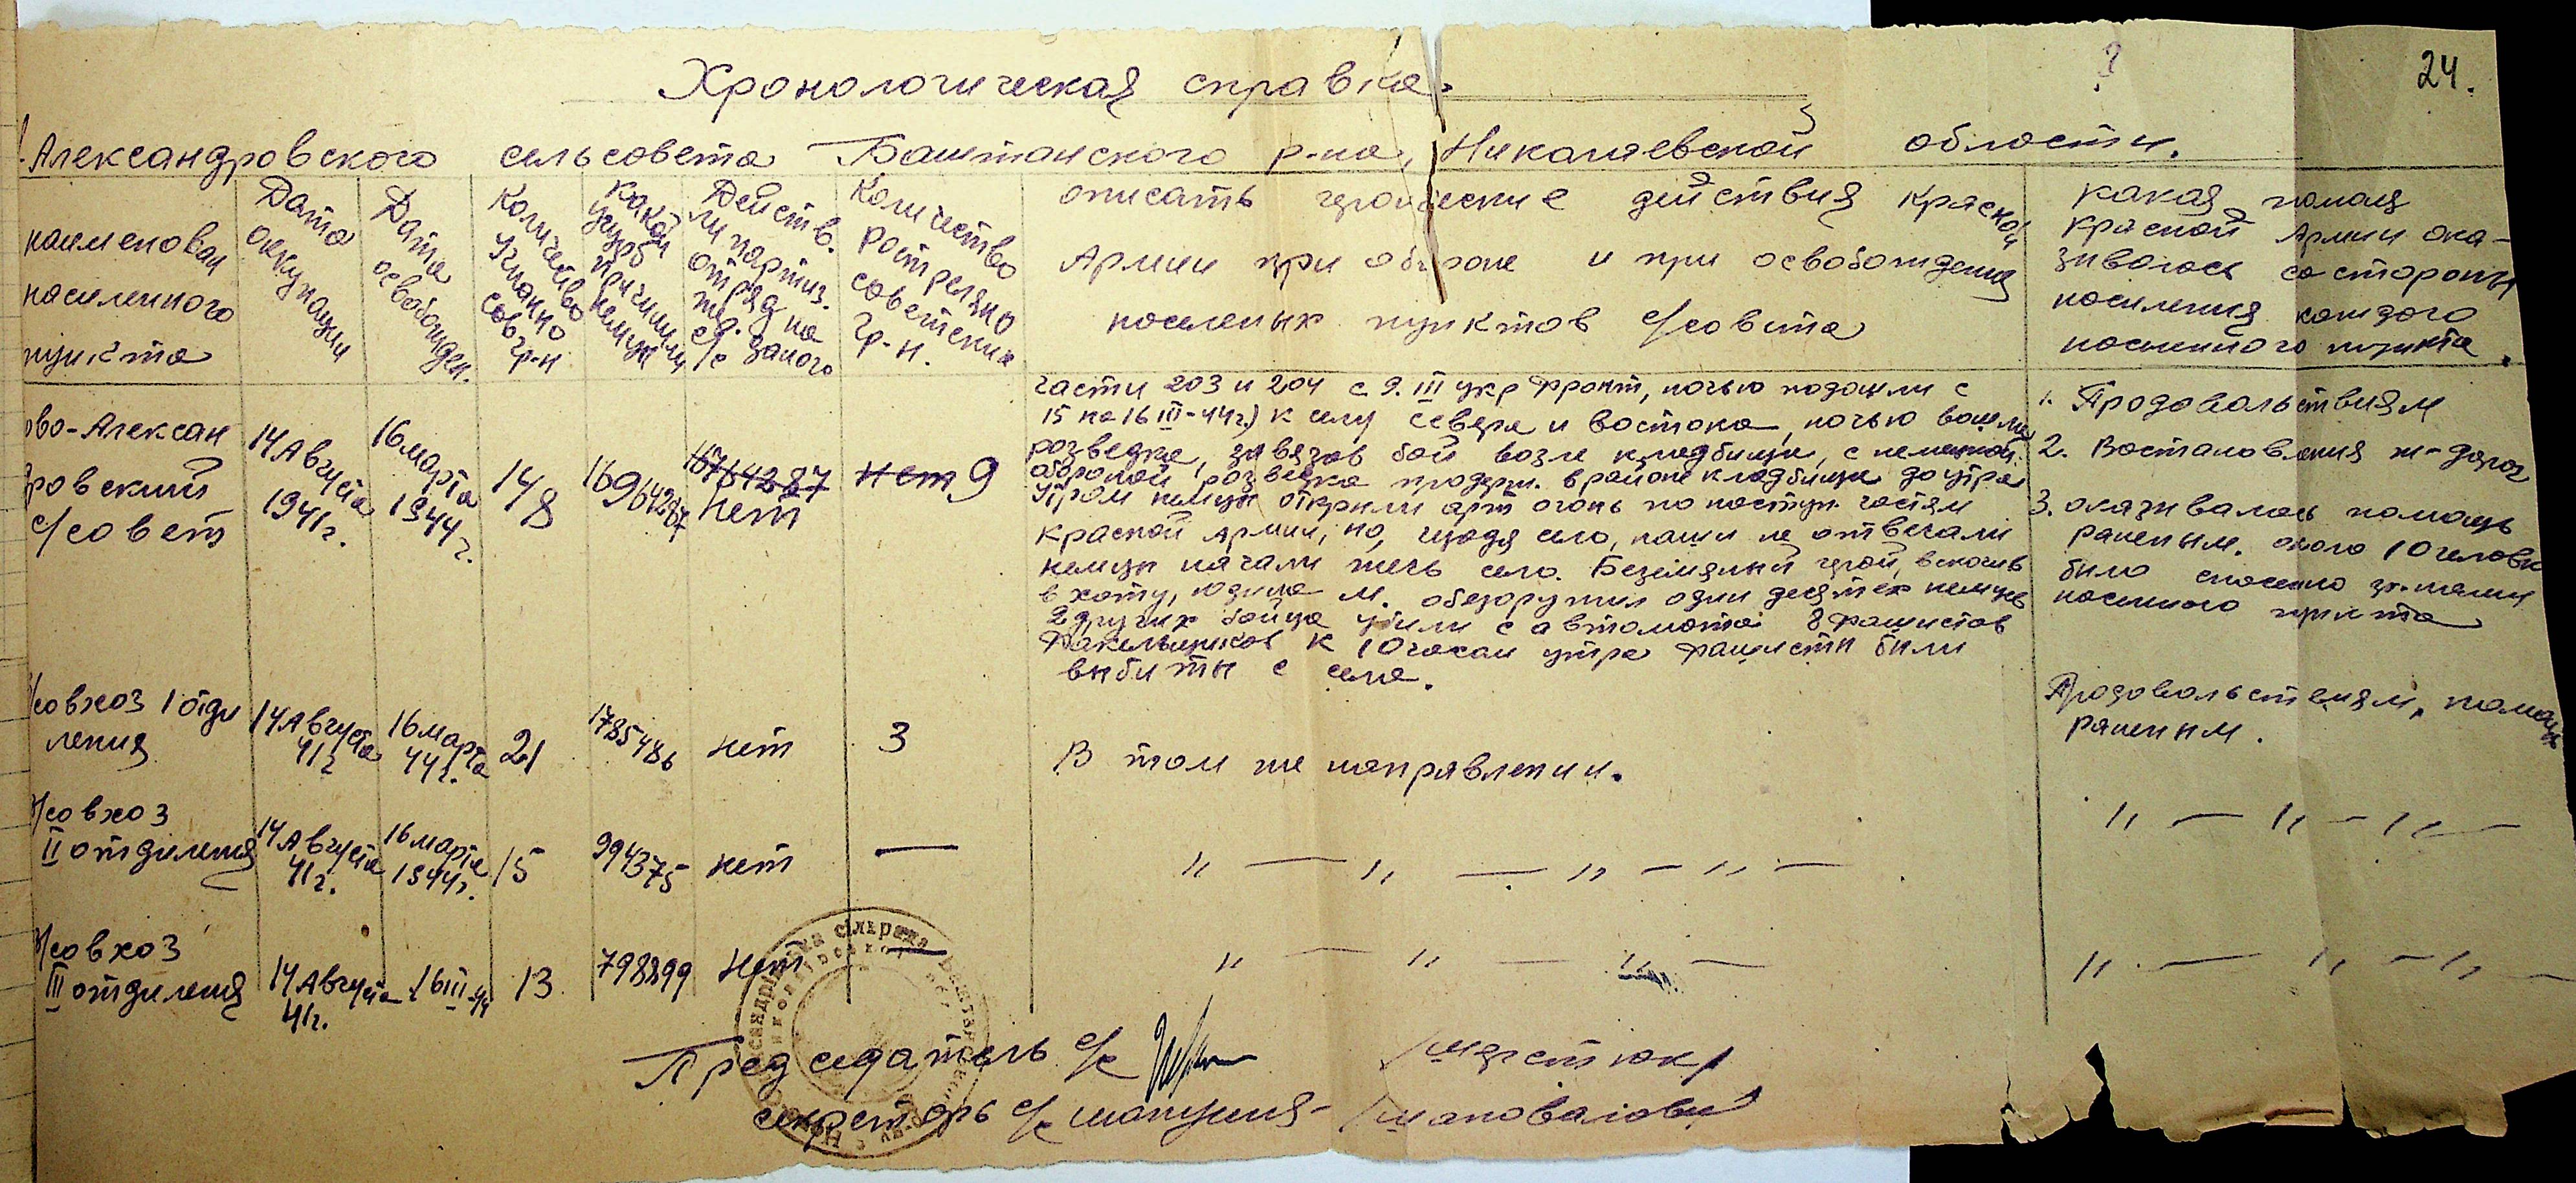 24.
Хронологическая справка.
Александровского сельсовета Баштанского р-на, Николаевской области.
наименован
населенного
пункта
Дата
оккупации
Дата
освобожден.
Количество
угнано
сов
гр-н
Какой
ущерб
причинили
немцы
Действ.
ли партиз.
отряд на
тер.
с/с
Количество
ростреляно
советских
гр-н.
описать героические действия Красной
Армии при обороне и при освобождения
населеных пунктов с/совета
какая помощ
красной Армии ока-
зивалось со стороны
населения каждого
населенного пункта.
ово-Алексан
дровский
с/совет
14 Августа
1941г.
16 марта
1944 г.
148
16964287
16764287
нет
нет 9
части 203 и 204 с.д. III укр фронт, ночью подошли с
15 на 16 III-44г.) к селу севера и востока, ночью вошли
розведка, завязав бой возле кладбища, с немецкой
обороной розведка продерж. в районе кладбища до утра
Утром немцы открили арт огонь по наступ. частям
красной армии, но, щадя село, наши не отвечали
немцы начали жечь село. Безимянный герой, вскочив
в хату, М. обезоружил один десятек немцев
2 других бойца убили с автомата 8 фашистов
Факельщиков к 10 часам утра фашисты били
выбиты с села.
1. Продовольствиям
2. Востановления ж-дорог
3. оказивалась помощь
раненым. около 10 человек
било спасенно
населеного пункта
совхоз 1 отде
ления
14 Августа
41г
16 марта
44г.
21
1785486
нет
3
В том же направлении.
Продовольствиям, помощь
раненым.
совхоз
II отделения
14 Августа
41г.
16 марта
1944г.
15
994375
нет
—
" — " — " — " —
" — " — " —
совхоз
III отделения
14 Августа
41г.
16 III-44
13
798899
нет
—
" — " — " —
" — " — " —
Председатель с/с
секретарь с/с /Шаповалова/